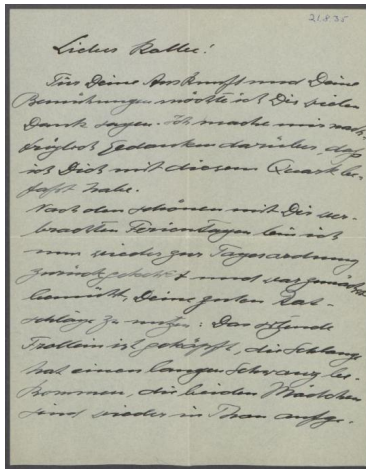 21.8.35
Liebes Kallee!
Für Deine Auskunft und Deine
Bemühungen möchte ich Dir vielen
Dank sagen. Ich mache mir nach-
träglich Gedanken darüber, daß
ich Dich mit diesem Quark be-
faßt habe.
Nach den schönen mit Dir ver-
brachten Ferientagen bin ich
nun wieder zur Tagesordnung
zurückgekehrt und war zunächst
bemüht, Deine guten Rat-
schläge zu nutzen: Das
Frollein ist geköpft, die Schlange
hat einen langen Schwanz be-
kommen, die beiden Mädchen
sind wieder in Thon aufge-